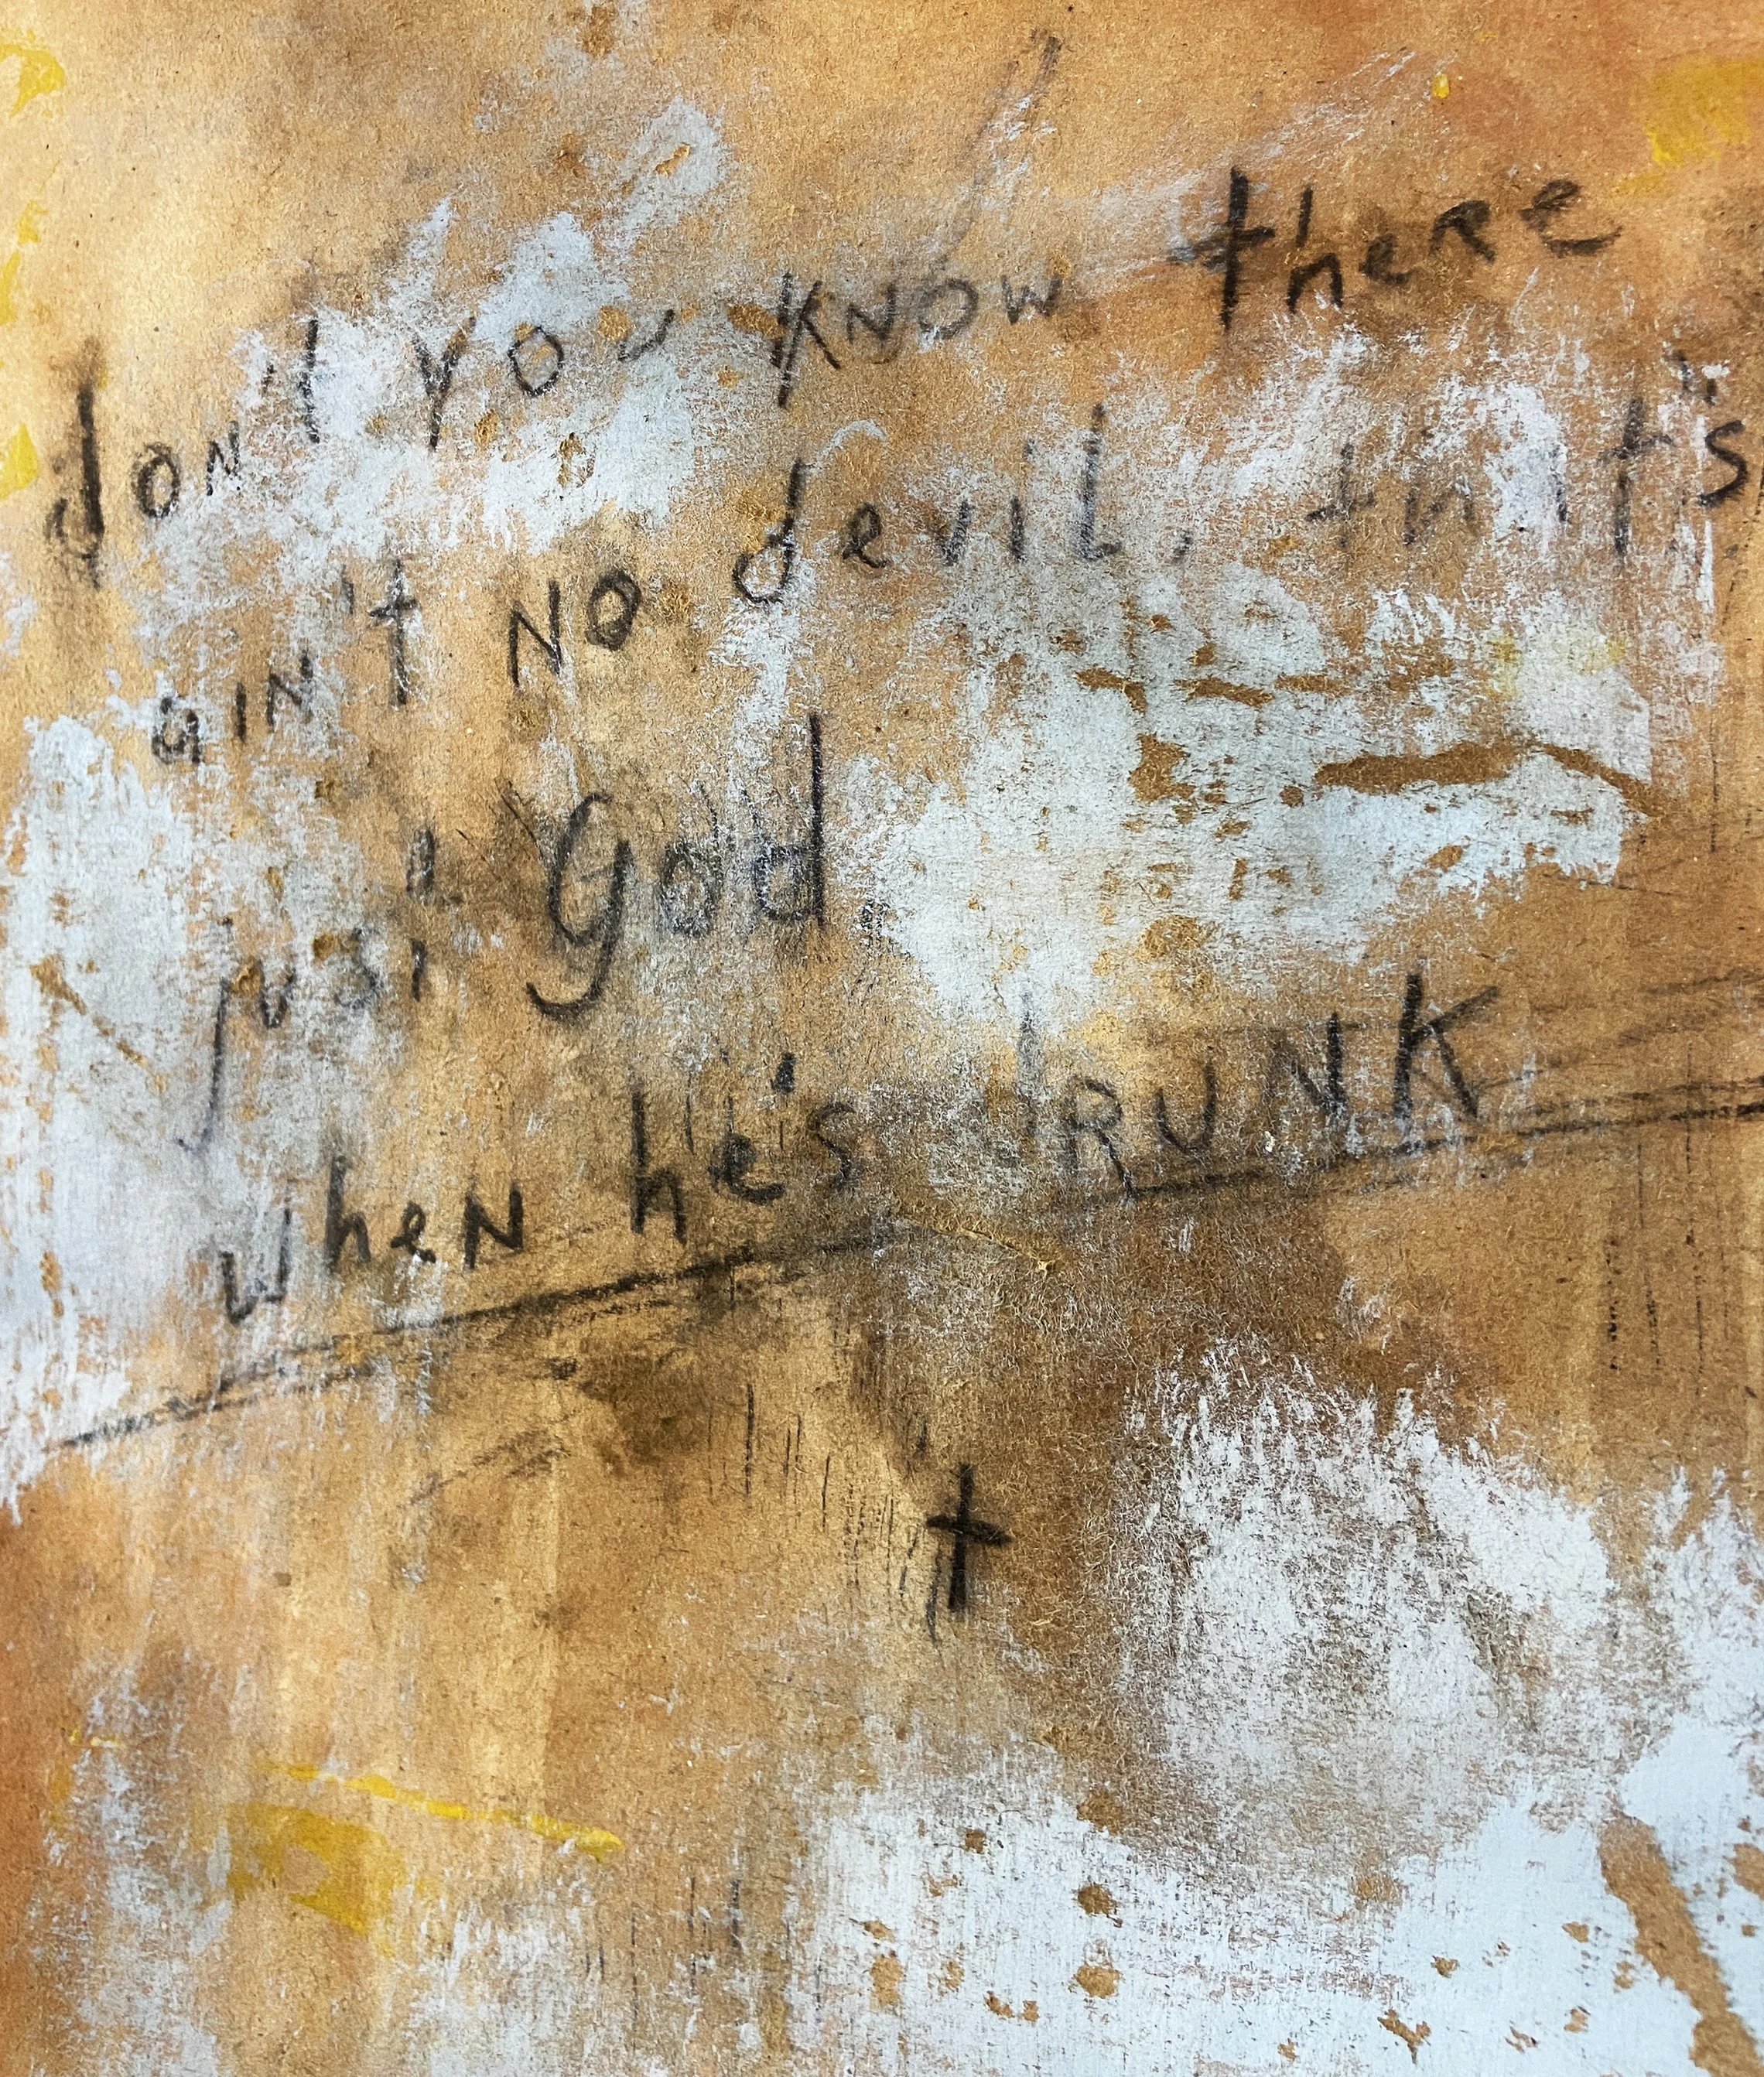 don't you know there
ain't no devil, that's
just God,
when he's drunk